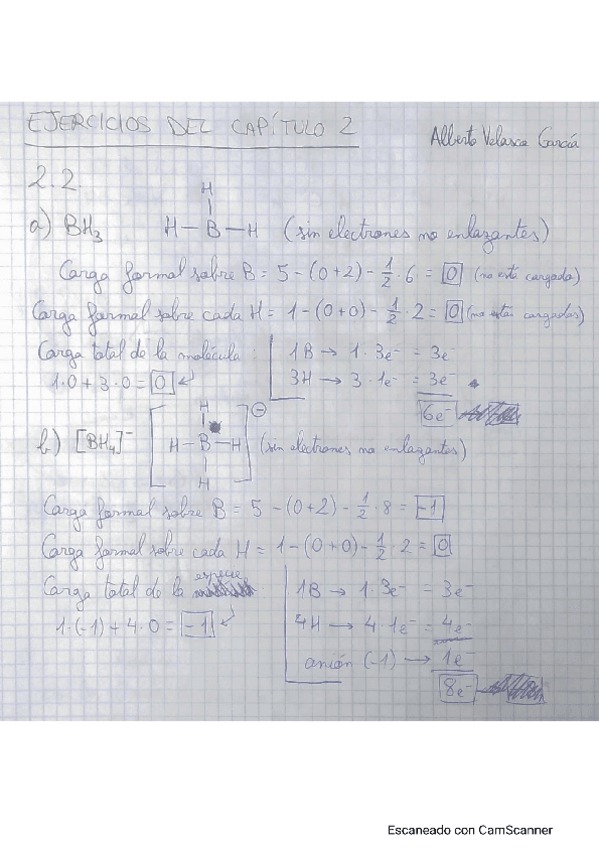 EJERCICIOS DEL CAPÍTULO 2
Alberto Velasco García
2.2
a) BH₃
H
H — B — H (sin electrones no enlazantes)
Carga formal sobre B = 5 - (0+2) - 1/2 · 6 = 0 (no está cargada)
Carga formal sobre cada H = 1 - (0+0) - 1/2 · 2 = 0 (no están cargados)
Carga total de la molécula:
1·0 + 3·0 = 0
1B → 1·3e⁻ = 3e⁻
3H → 3·1e⁻ = 3e⁻
6e⁻
b) [BH₄]⁻
H
H — B — H
H
⊖
(sin electrones no enlazantes)
Carga formal sobre B = 5 - (0+2) - 1/2 · 8 = -1
Carga formal sobre cada H = 1 - (0+0) - 1/2 · 2 = 0
Carga total de la especie
1·(-1) + 4·0 = -1
1B → 1·3e⁻ = 3e⁻
4H → 4·1e⁻ = 4e⁻
anión (-1) → 1e⁻
8e⁻
Escaneado con CamScanner